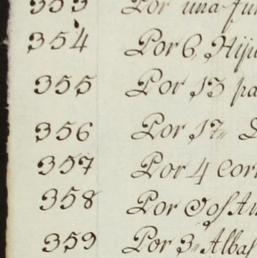 353 Por una fu
354 Por 6 Hiju
355 Por 13 pa
356 Por 17
357 Por 4 Cor
358 Por
359 Por 3 Albas